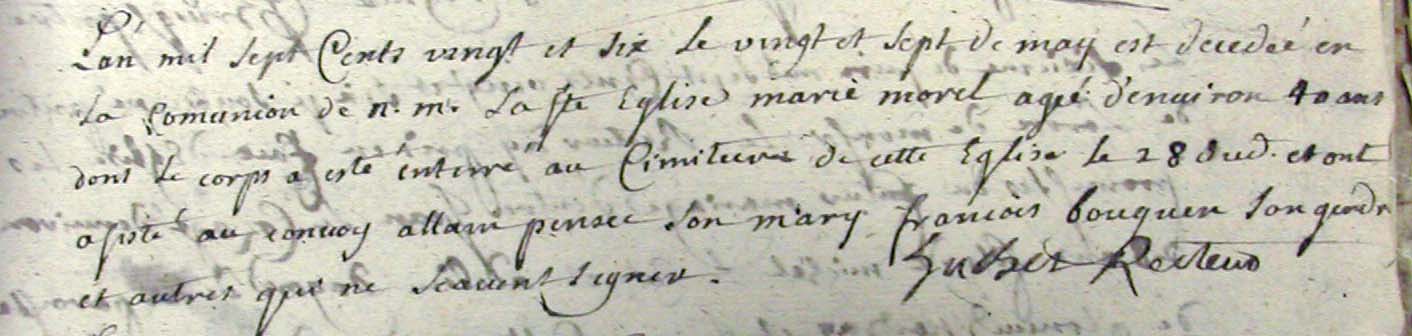 L'an mil sept Cents vingt et six le vingt et sept de may est decedeé en
la Comunion de n. m. La ste Eglise marie morel ageé d'enuiron 40 ans
dont le corps a esté enterré au Cimiteere de cette Eglise le 28 dud. et ont
asisté au conuoy allain pensec son mary francois bouguen son gendr
et autres qui ne scauent signer. Recteur